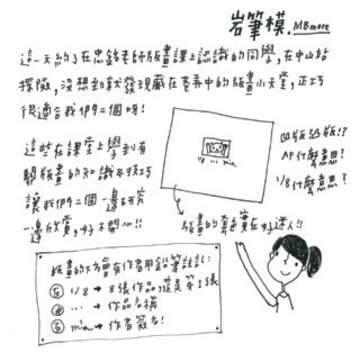 岩筆模.MBmore
這一天約了在忠銘老師版畫課上認識的同學,在中山站
探險,沒想到就發現藏在巷弄中的版畫小天堂,正巧
很適合我們二個呀!
這些在課堂上學到有
關版畫的知識及技巧
讓我們二個一邊研究
一邊欣賞,好不開心!!
1/8 ... mia
凹版凸版!?
AP什麼意思?
1/8什麼意思?
版畫的真實在好迷人!!
版畫的下方會有作者用鉛筆註記:
左 1/8 → 8張作品,這是第1張
中 ... → 作品名稱
右 mia → 作者簽名!